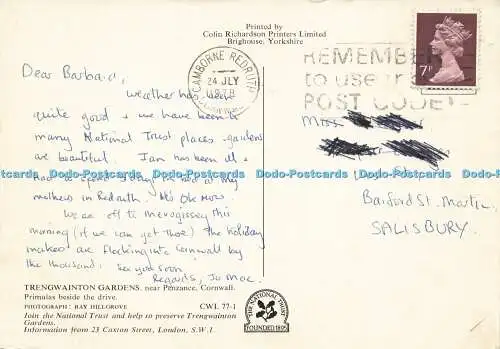 Printed by
Colin Richardson Printers Limited
Brighouse, Yorkshire
CAMBORNE REDRUTH
24 JLY
1978
CORNWALL
REMEMBER
to use
POST CODE
7P
Dear Barbara,
weather has been
quite good & we have been to
many National Trust places - gardens
are beautiful. Ian has been ill &
had a spell in bed at my
mothers in Redruth. He's OK now
We are off to Mevagissey this
morning (if we can get there) the holiday
makers are flocking into Cornwall by
the thousand. See you soon
Regards, Ju
Miss
Barford St. Martin,
SALISBURY.
Postcards Postcards Postcards Postcards Postcards Postcards Postcards
TRENGWAINTON GARDENS, near Penzance, Cornwall.
Primulas beside the drive.
PHOTOGRAPH : RAY HILLGROVE CWL 77-1
Join the National Trust and help to preserve Trengwainton
Gardens.
Information from 23 Caxton Street, London, S.W.1.
THE NATIONAL TRUST
FOUNDED 1895